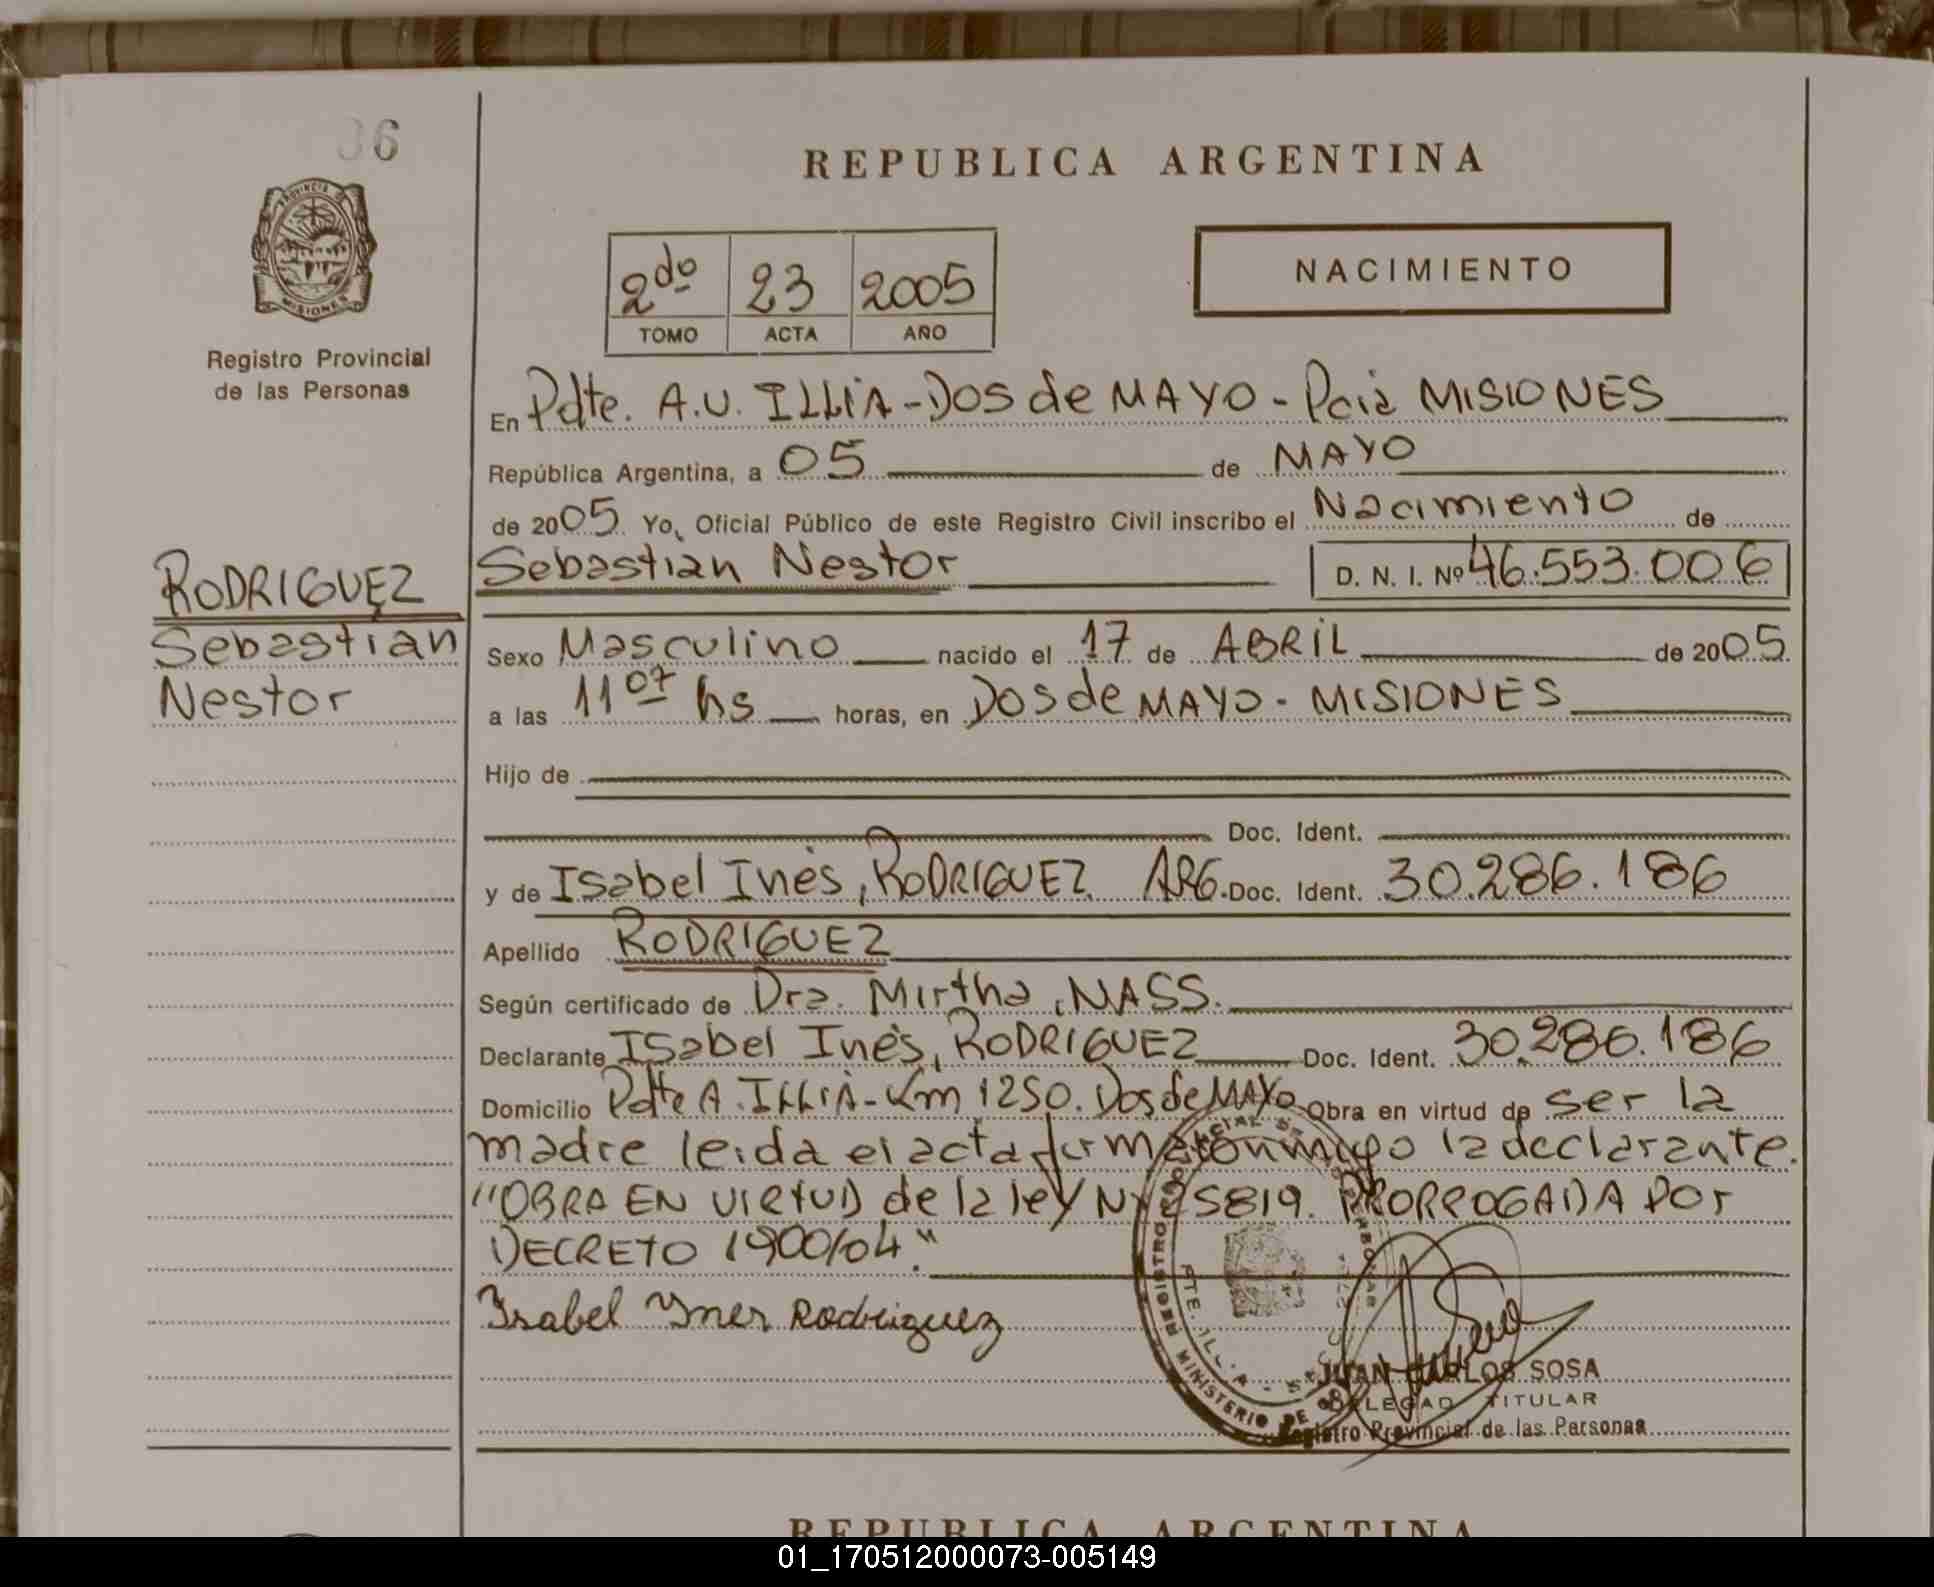 36
REPUBLICA ARGENTINA
PROVINCIA DE
MISIONES
2do 23 2005
TOMO ACTA AÑO
NACIMIENTO
Registro Provincial
de las Personas
En Pdte. A.U. ILLIA-DOS de MAYO - Pcia MISIONES
República Argentina, a 05 de MAYO
de 2005 Yo, Oficial Público de este Registro Civil inscribo el Nacimiento de
Sebastian Nestor D. N. I. Nº 46.553.006
RODRIGUEZ
Sebastian
Nestor
Sexo Masculino nacido el 17 de ABRIL de 2005
a las 11 07 hs horas, en DOS de MAYO - MISIONES
Hijo de
Doc. Ident.
y de Isabel Inés, RODRIGUEZ ARG. Doc. Ident. 30.286.186
Apellido RODRIGUEZ
Según certificado de Dra. Mirtha, NASS.
Declarante Isabel Inés, RODRIGUEZ Doc. Ident. 30.286.186
Domicilio Pdte A. ILLIA - Km 1250. Dos de MAYO Obra en virtud de ser la
madre leida el acta firma conmigo la declarante.
"OBRA EN VIRTUD de la ley Nº 25819. PRORROGADA POR
DECRETO 1900/04".
Isabel Ynes Rodriguez
JUAN CARLOS SOSA
DELEGADO TITULAR
Registro Provincial de las Personas
REPUBLICA ARGENTINA
01_170512000073-005149